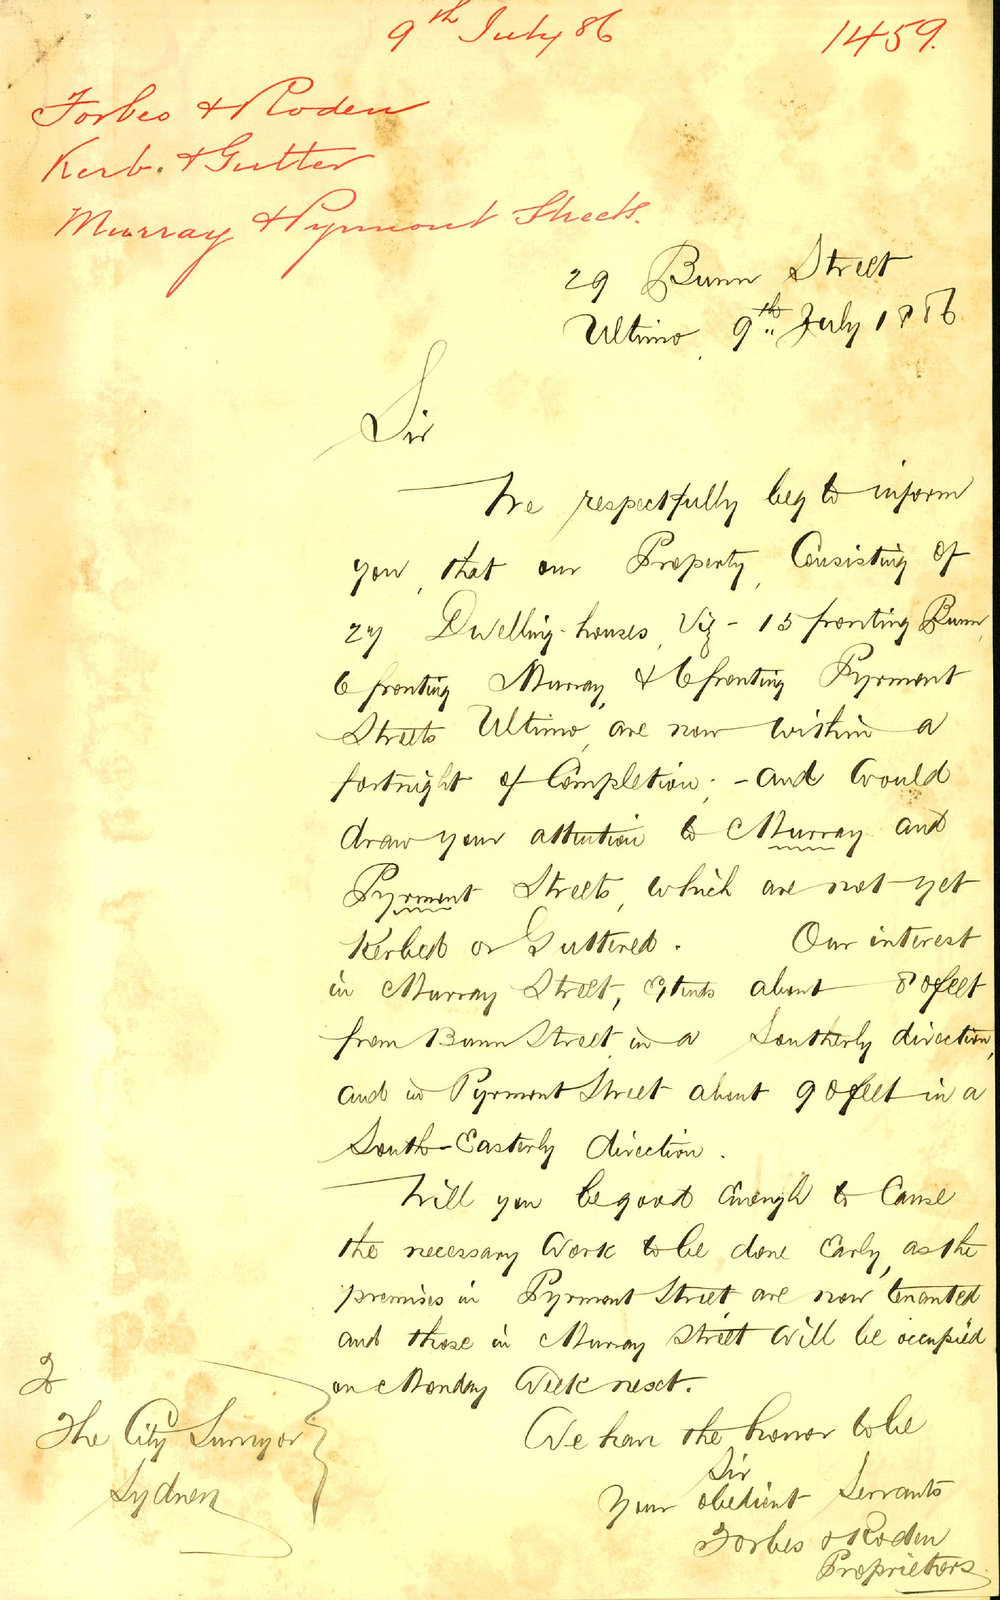 9th July 86
1459.
Forbes & Roden
Kerb. & Gutter
Murray & Pyrmont Streets.
29 Bunn Street
Ultimo, 9th July 1886
Sir
We respectfully beg to inform
you, that our Property, Consisting of
27 Dwelling-houses, Viz - 15 fronting Bunn,
6 fronting Murray, & 6 fronting Pyrmont
Streets Ultimo, are now within a
fortnight of Completion; - and would
draw your attention to Murray and
Pyrmont Streets, which are not yet
Kerbed or Guttered. Our interest
in Murray Street, extents about 80 feet
from Bunn Street in a Southerly direction,
and in Pyrmont Street about 90 feet in a
South-Easterly direction.
Will you be good enough to Cause
the necessary Work to be done Early, as the
premises in Pyrmont Street are now tenanted
and those in Murray Street will be occupied
on Monday Week next.
We have the honor to be
Sir
Your obedient Servants
Forbes & Roden
Proprietors
To
The City Surveyor
Sydney